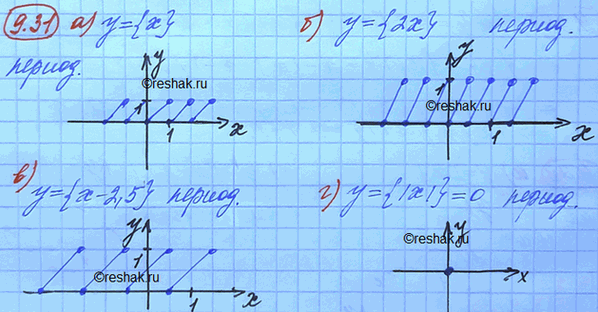 9.31 а) y={x}
период.
y
©reshak.ru
1
1
x
б) y={2x} период.
y
1
©reshak.ru
1
x
в)
y={x-2,5} период.
y
1
©reshak.ru
1
x
г) y={|x|}=0 период.
©reshak.ru
y
x